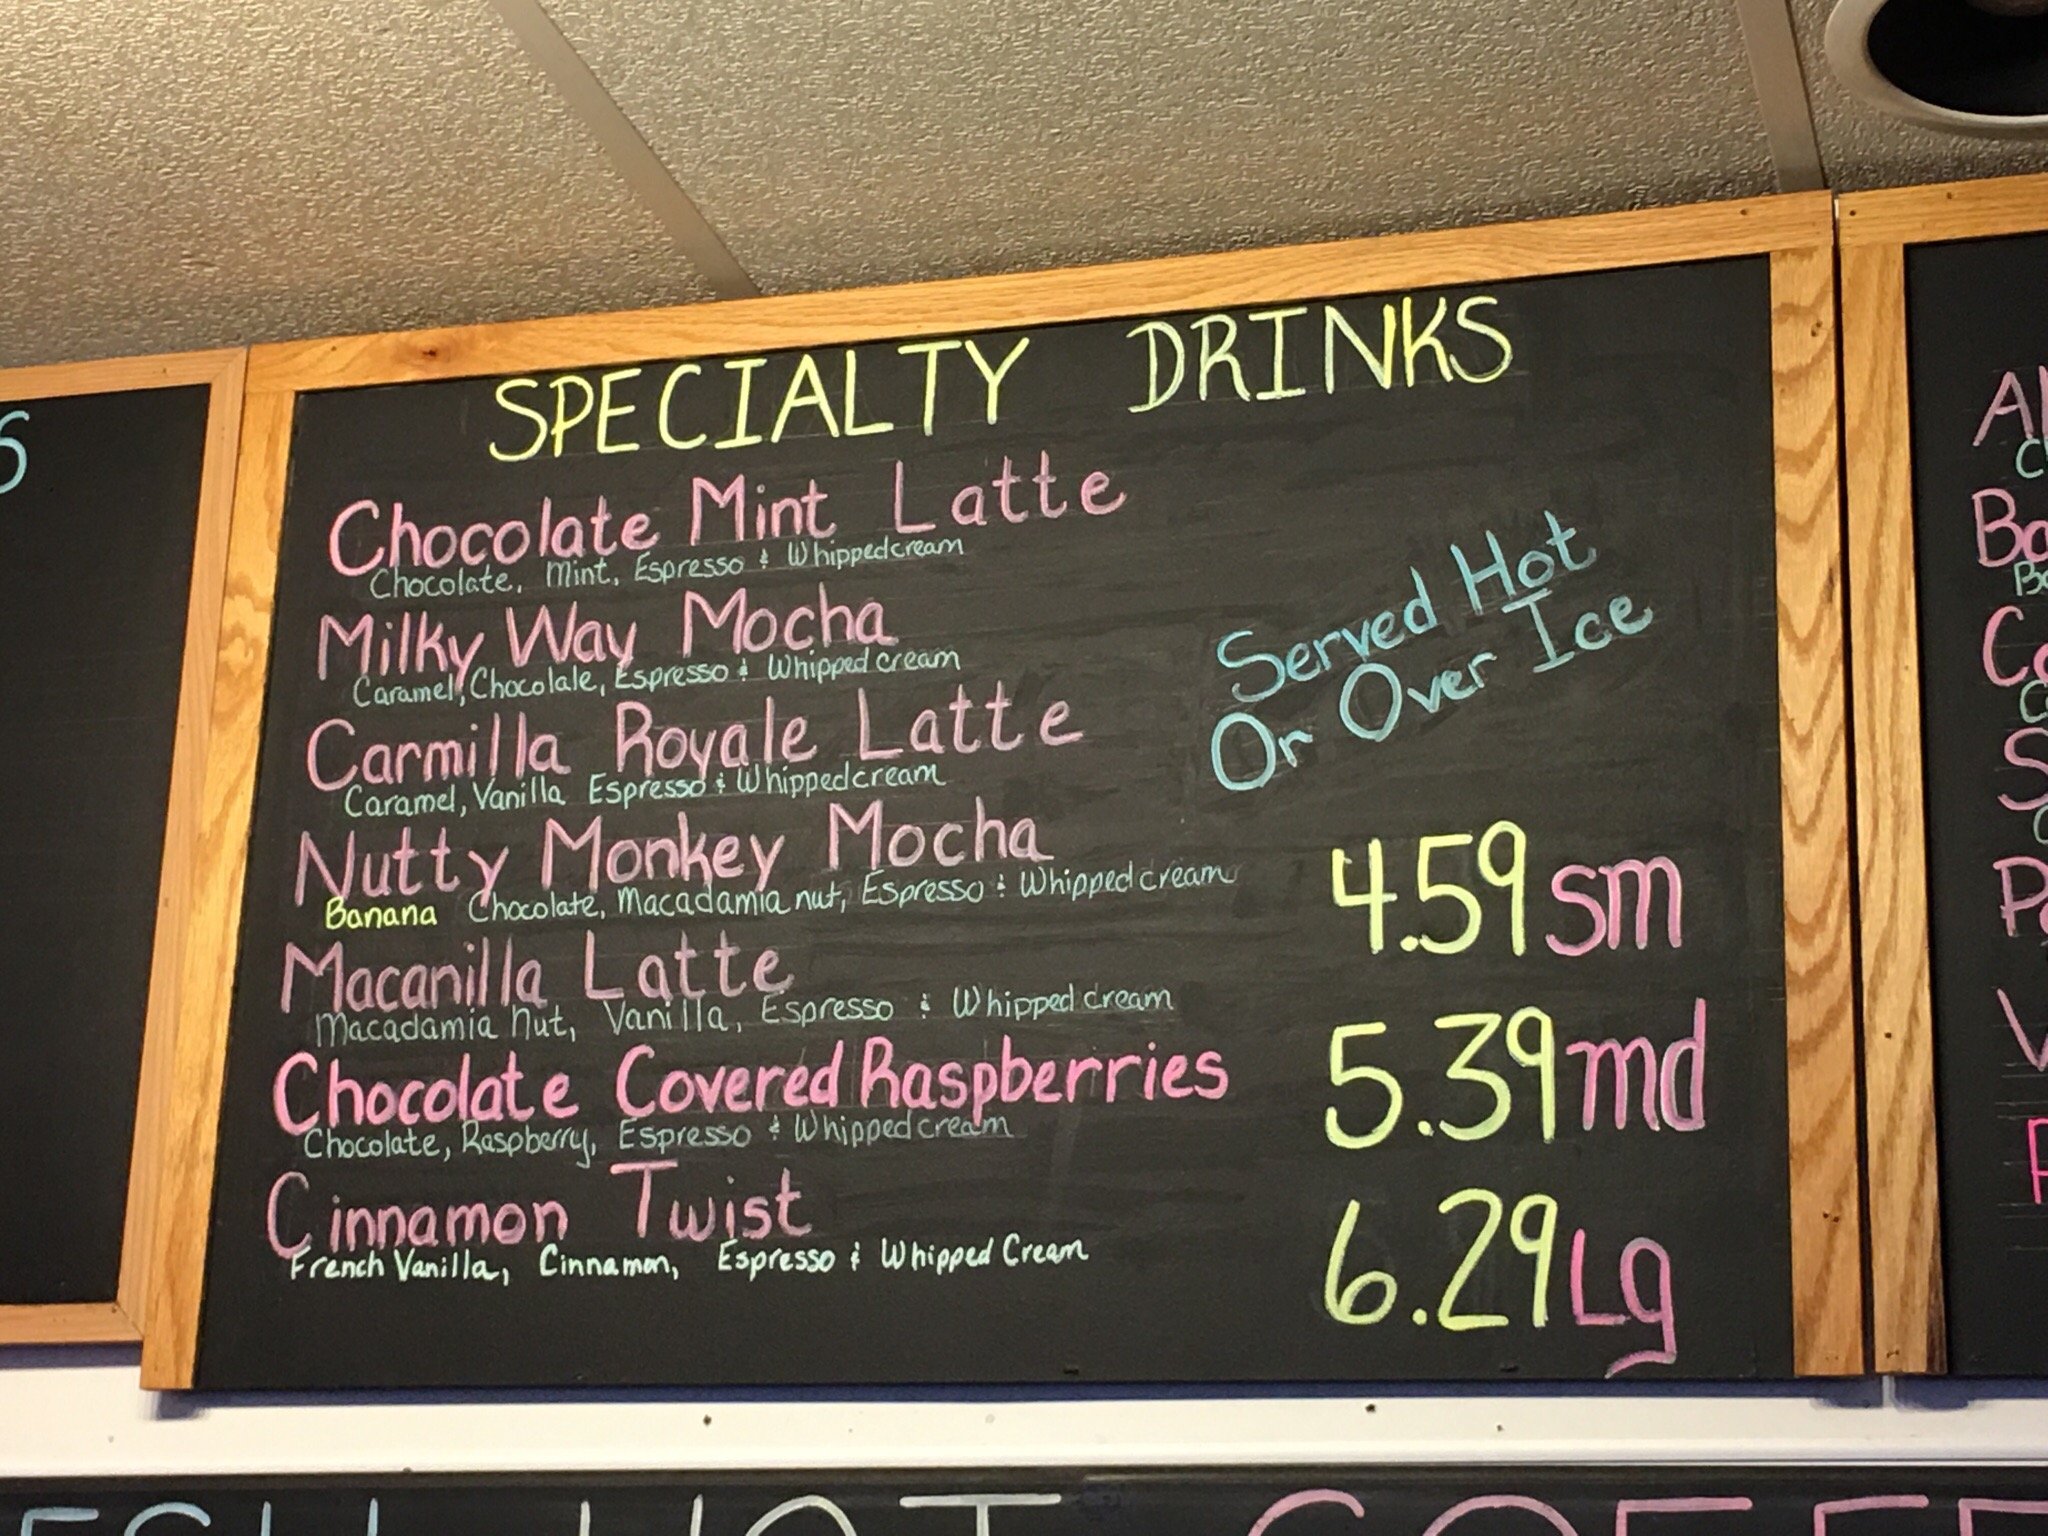 SPECIALTY DRINKS
Chocolate Mint Latte
Chocolate, Mint, Espresso & Whipped cream
Milky Way Mocha
Caramel, Chocolate, Espresso & Whipped cream
Carmilla Royale Latte
Caramel, Vanilla Espresso & Whipped cream
Nutty Monkey Mocha
Banana Chocolate, Macadamia nut, Espresso & Whipped cream
Macanilla Latte
Macadamia nut, Vanilla, Espresso & Whipped cream
Chocolate Covered Raspberries
Chocolate, Raspberry, Espresso & Whipped cream
Cinnamon Twist
French Vanilla, Cinnamon, Espresso & Whipped Cream
Served Hot
Or Over Ice
4.59 sm
5.39 md
6.29 Lg
HOT